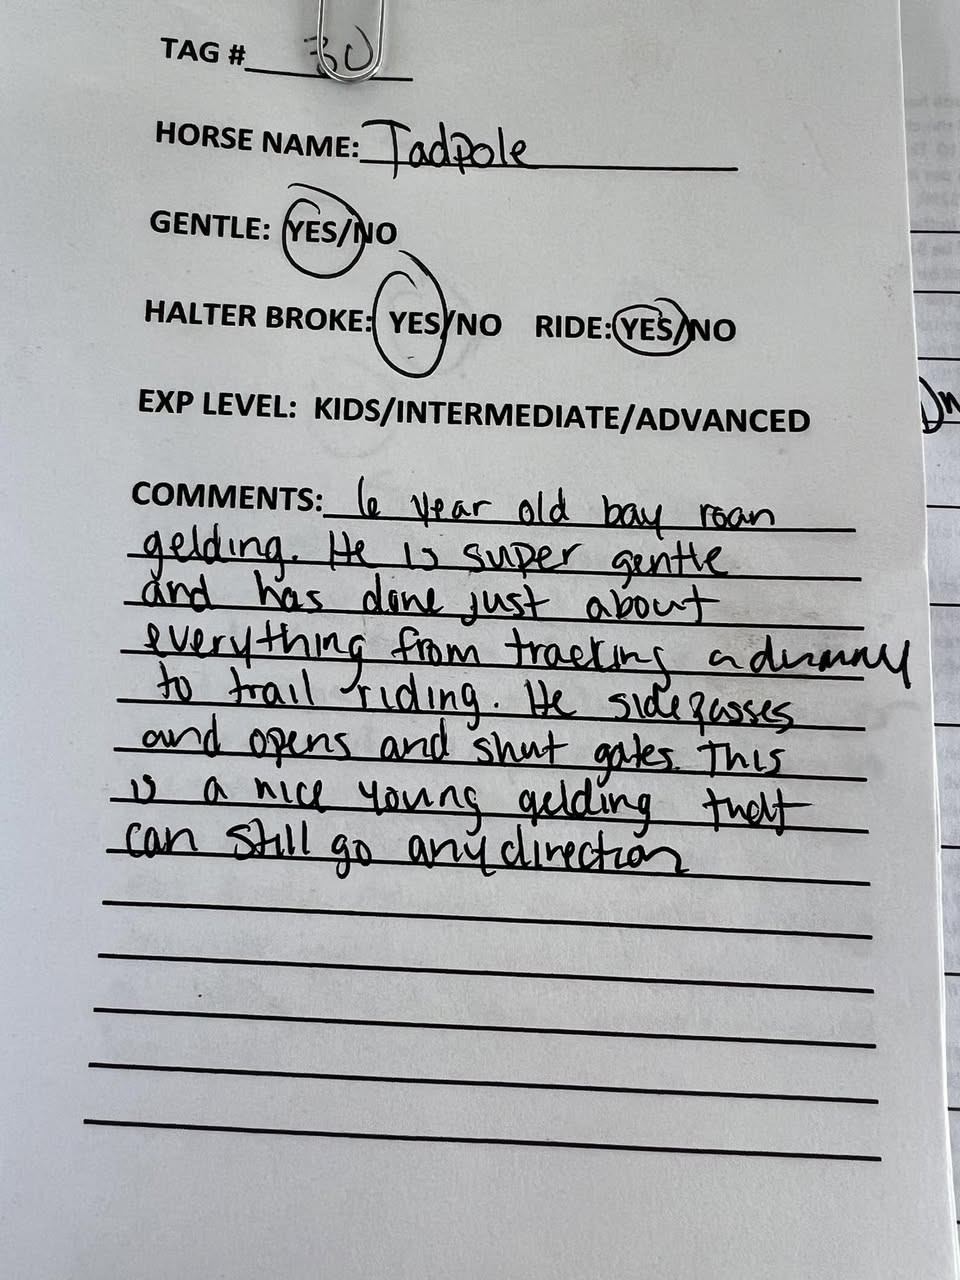 TAG # 30
HORSE NAME: Tadpole
GENTLE: YES/NO
HALTER BROKE: YES/NO RIDE: YES/NO
EXP LEVEL: KIDS/INTERMEDIATE/ADVANCED
COMMENTS: 6 year old bay roan
gelding. He is super gentle
and has done just about
everything from tracking a dummy
to trail riding. He sidepasses
and opens and shut gates. This
is a nice young gelding that
can still go any direction